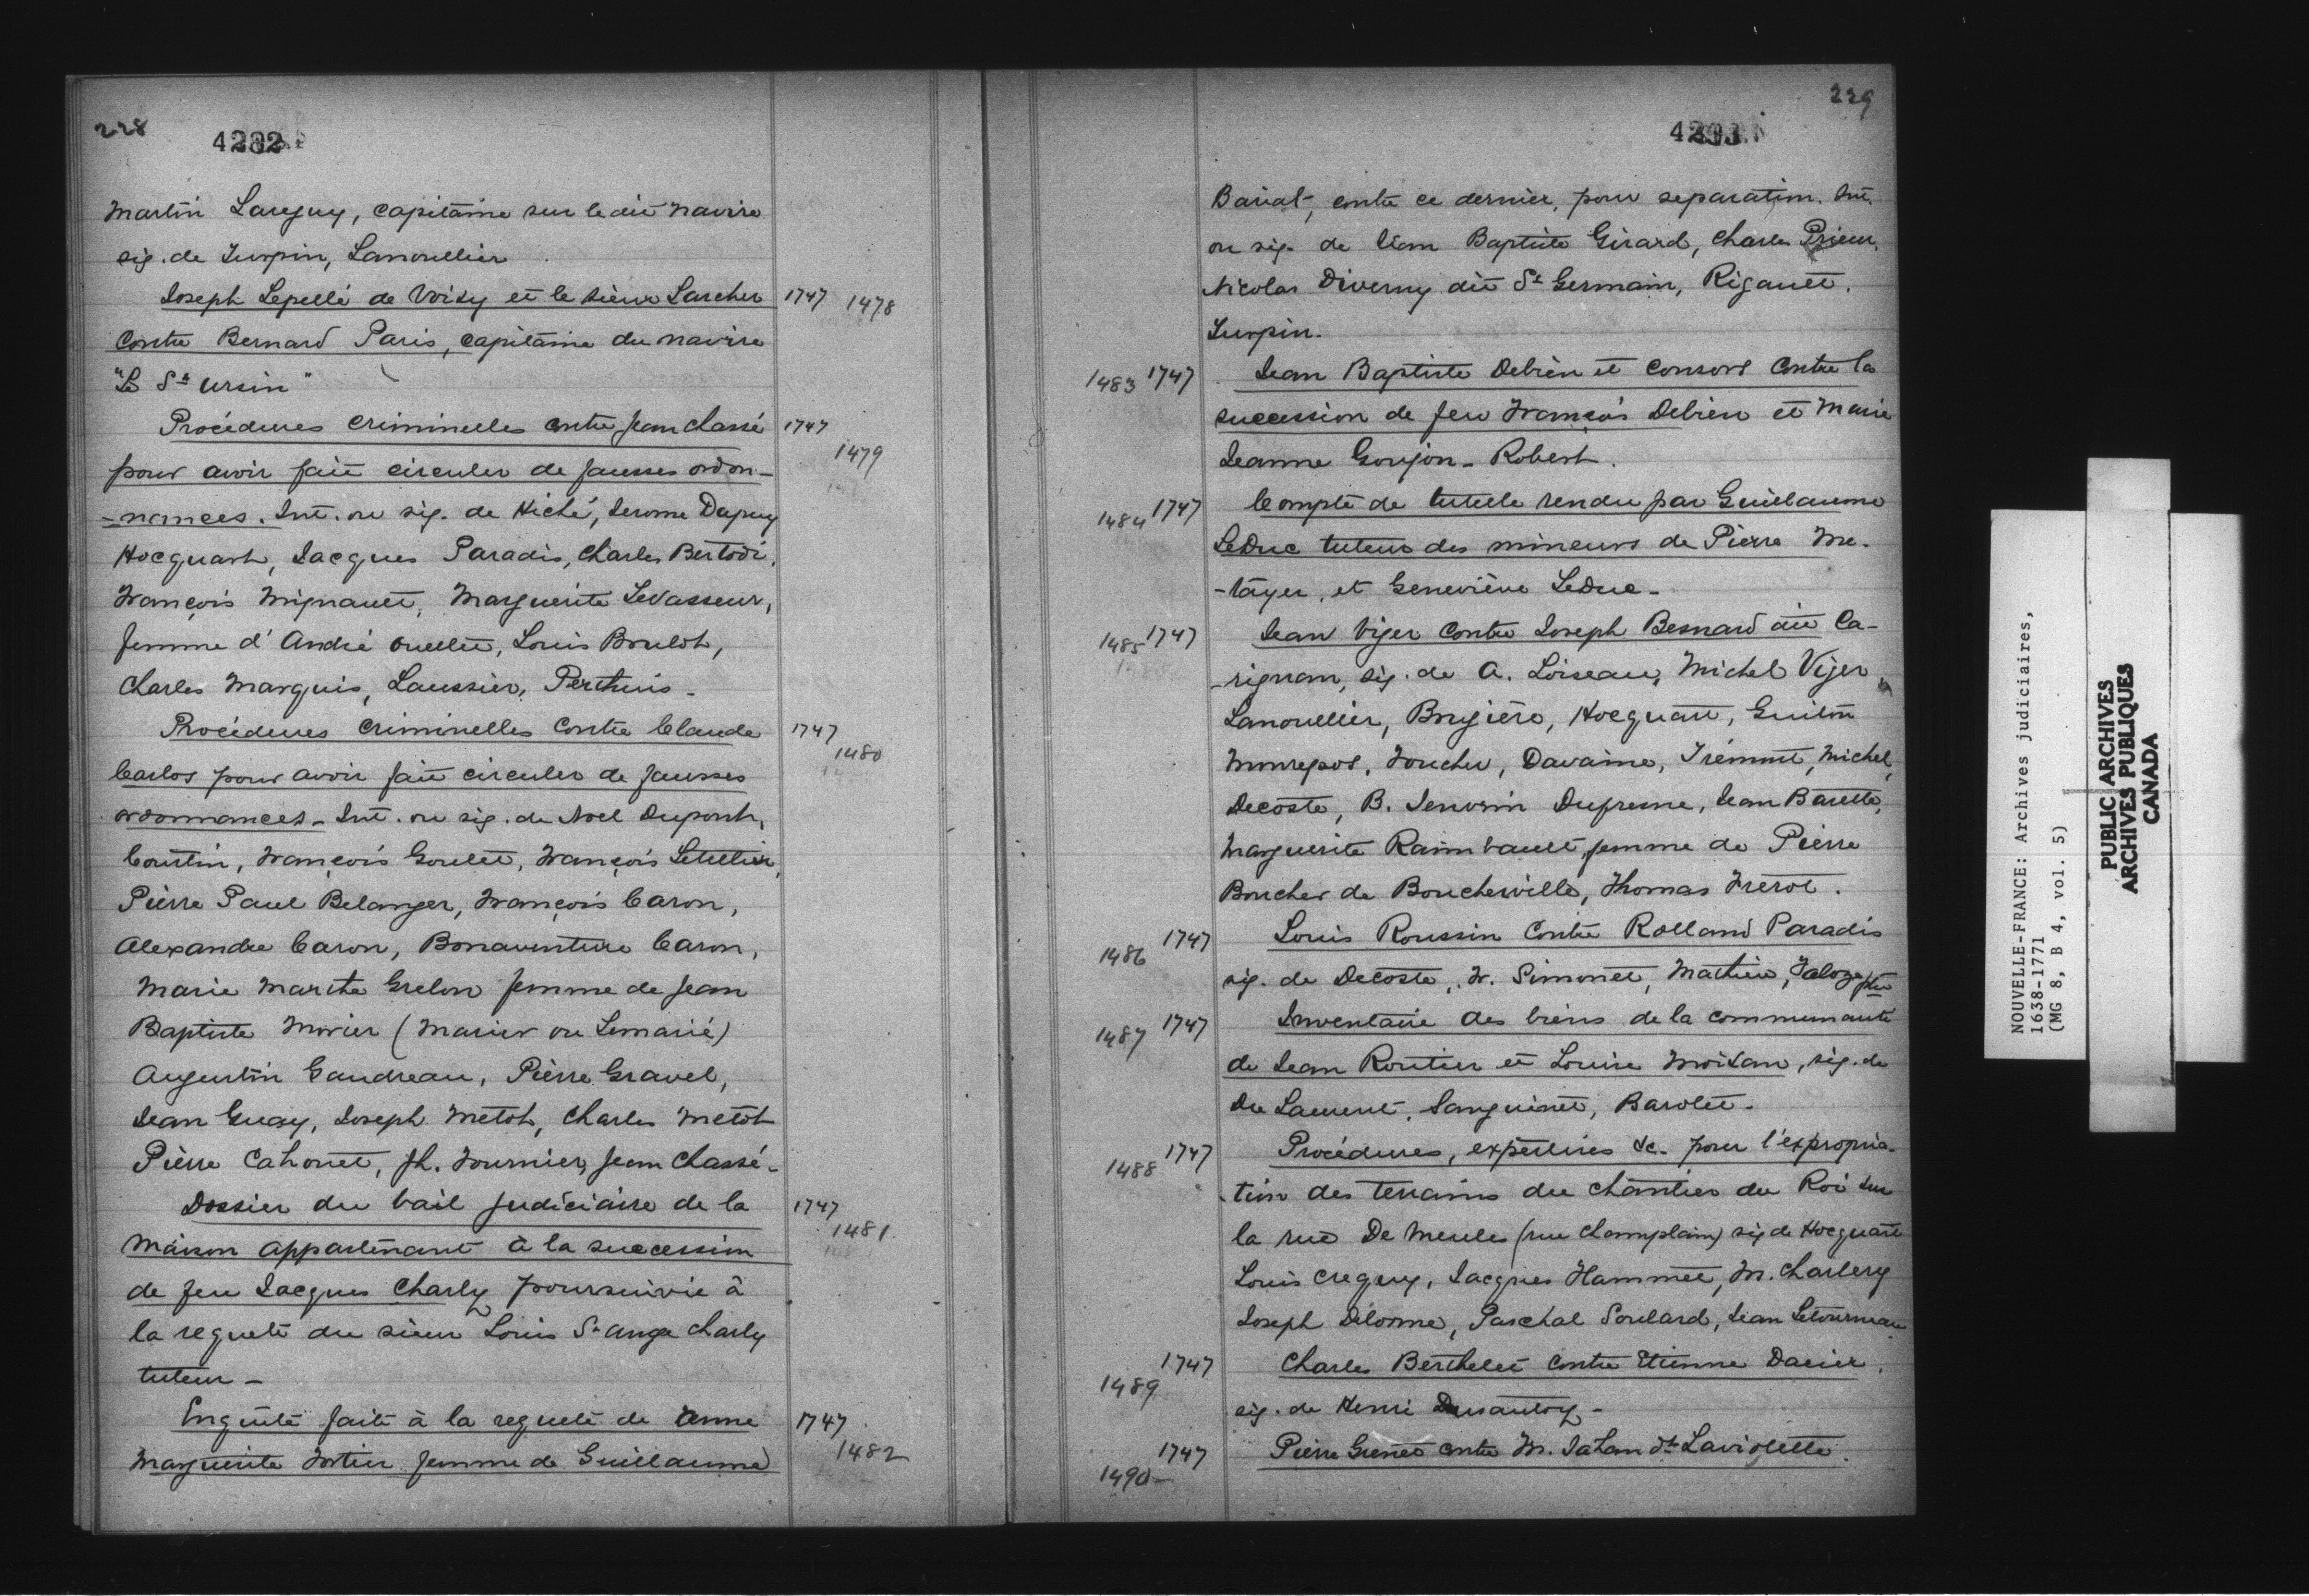 228
4292
Martin Larguy, capitaine sur le dit navire
sig. de Turpin, Lanoullier
Joseph Lepellé de Voisy et le sieur Larcher 1747 1478
contre Bernard Paris, capitaine du navire
"Le St Ursin"
Procédures criminelles contre Jean Chassé 1747
1479
pour avoir fait circuler de fausses ordon-
-nances. Int. ou sig. de Hiché, Jerome Dapuy
Hocquart, Jacques Paradis, Charles Bertodi,
François Mignault, Marguerite Levasseur,
femme d'André Ouellet, Louis Boulot,
Charles Marquis, Laussier, Perthuis -
Procédures criminelles contre Claude 1747
1480
Carlos pour avoir fait circuler de fausses
ordonnances - Int. ou sig. de Noel Dupont,
Coutin, François Goulet, François Letellier,
Pierre Paul Belanger, François Caron,
Alexandre Caron, Bonaventure Caron,
Marie Marthe Grelon femme de Jean
Baptiste Morier (Marier ou Lemarié)
Augustin Gaudreau, Pierre Gravel,
Jean Guay, Joseph Metot, Charles Metot
Pierre Cahouet, Ph. Fournier, Jean Chassé -
Dossier du bail judiciaire de la 1747
1481
maison appartenant à la succession
de feu Jacques Charly poursuivie à
la requete du sieur Louis St Ange Charly
tuteur -
Enquête faite à la requete de Anne 1747
1482
Marguerite Fortin femme de Guillaume
229
4293
Barial, contre ce dernier, pour separation. Int.
ou sig. de Jean Baptiste Girard, Charles Prieur,
Nicolas Diverny dit St Germain, Rigault.
Turpin.
1483 1747 Jean Baptiste Debien et consors contre la
succession de feu François Debien et Marie
Jeanne Goujon - Robert.
1484 1747 Compte de tutelle rendu par Guillaume
LeDuc tuteur des mineurs de Pierre Me-
-tayer, et Geneviève LeDuc -
1485 1747 Jean Viger contre Joseph Besnard dit Ca-
-rignan, sig. de A. Loiseau, Michel Viger,
Lanoullier, Brugière, Hocquart, Guiton
Monrepos, Foucher, Davaine, Trémont, Michel,
Decoste, B. Janvrin Dufresne, Jean Barette,
Marguerite Raimbault, femme de Pierre
Boucher de Boucherville, Thomas Frerot.
1486 1747 Louis Roussin contre Rolland Paradis
sig. de Decoste, F. Simonet, Mathieu, Jaloze ptre
1487 1747 Inventaire des biens de la communauté
de Jean Routier et Louise Moisan, sig. de
Du Laurent, Sanguinet, Barolet -
1488 1747 Procédures, expertises &c. pour l'expropria-
tion des terrains du chantier du Roi sur
la rue De Meules (rue Champlain) sig de Hocquart
Louis Creguy, Jacques Hammel, M. Charlery
Joseph Delorme, Paschal Soulard, Jean Letourneau
1489 1747 Charles Berthelet contre Etienne Darier.
sig. de Henri Dusautoy -
1490 1747 Pierre Grenet contre M. Jahan dt Laviolette.
NOUVELLE-FRANCE: Archives judiciaires,
1638-1771
(MG 8, B 4, vol. 5)
PUBLIC ARCHIVES
ARCHIVES PUBLIQUES
CANADA